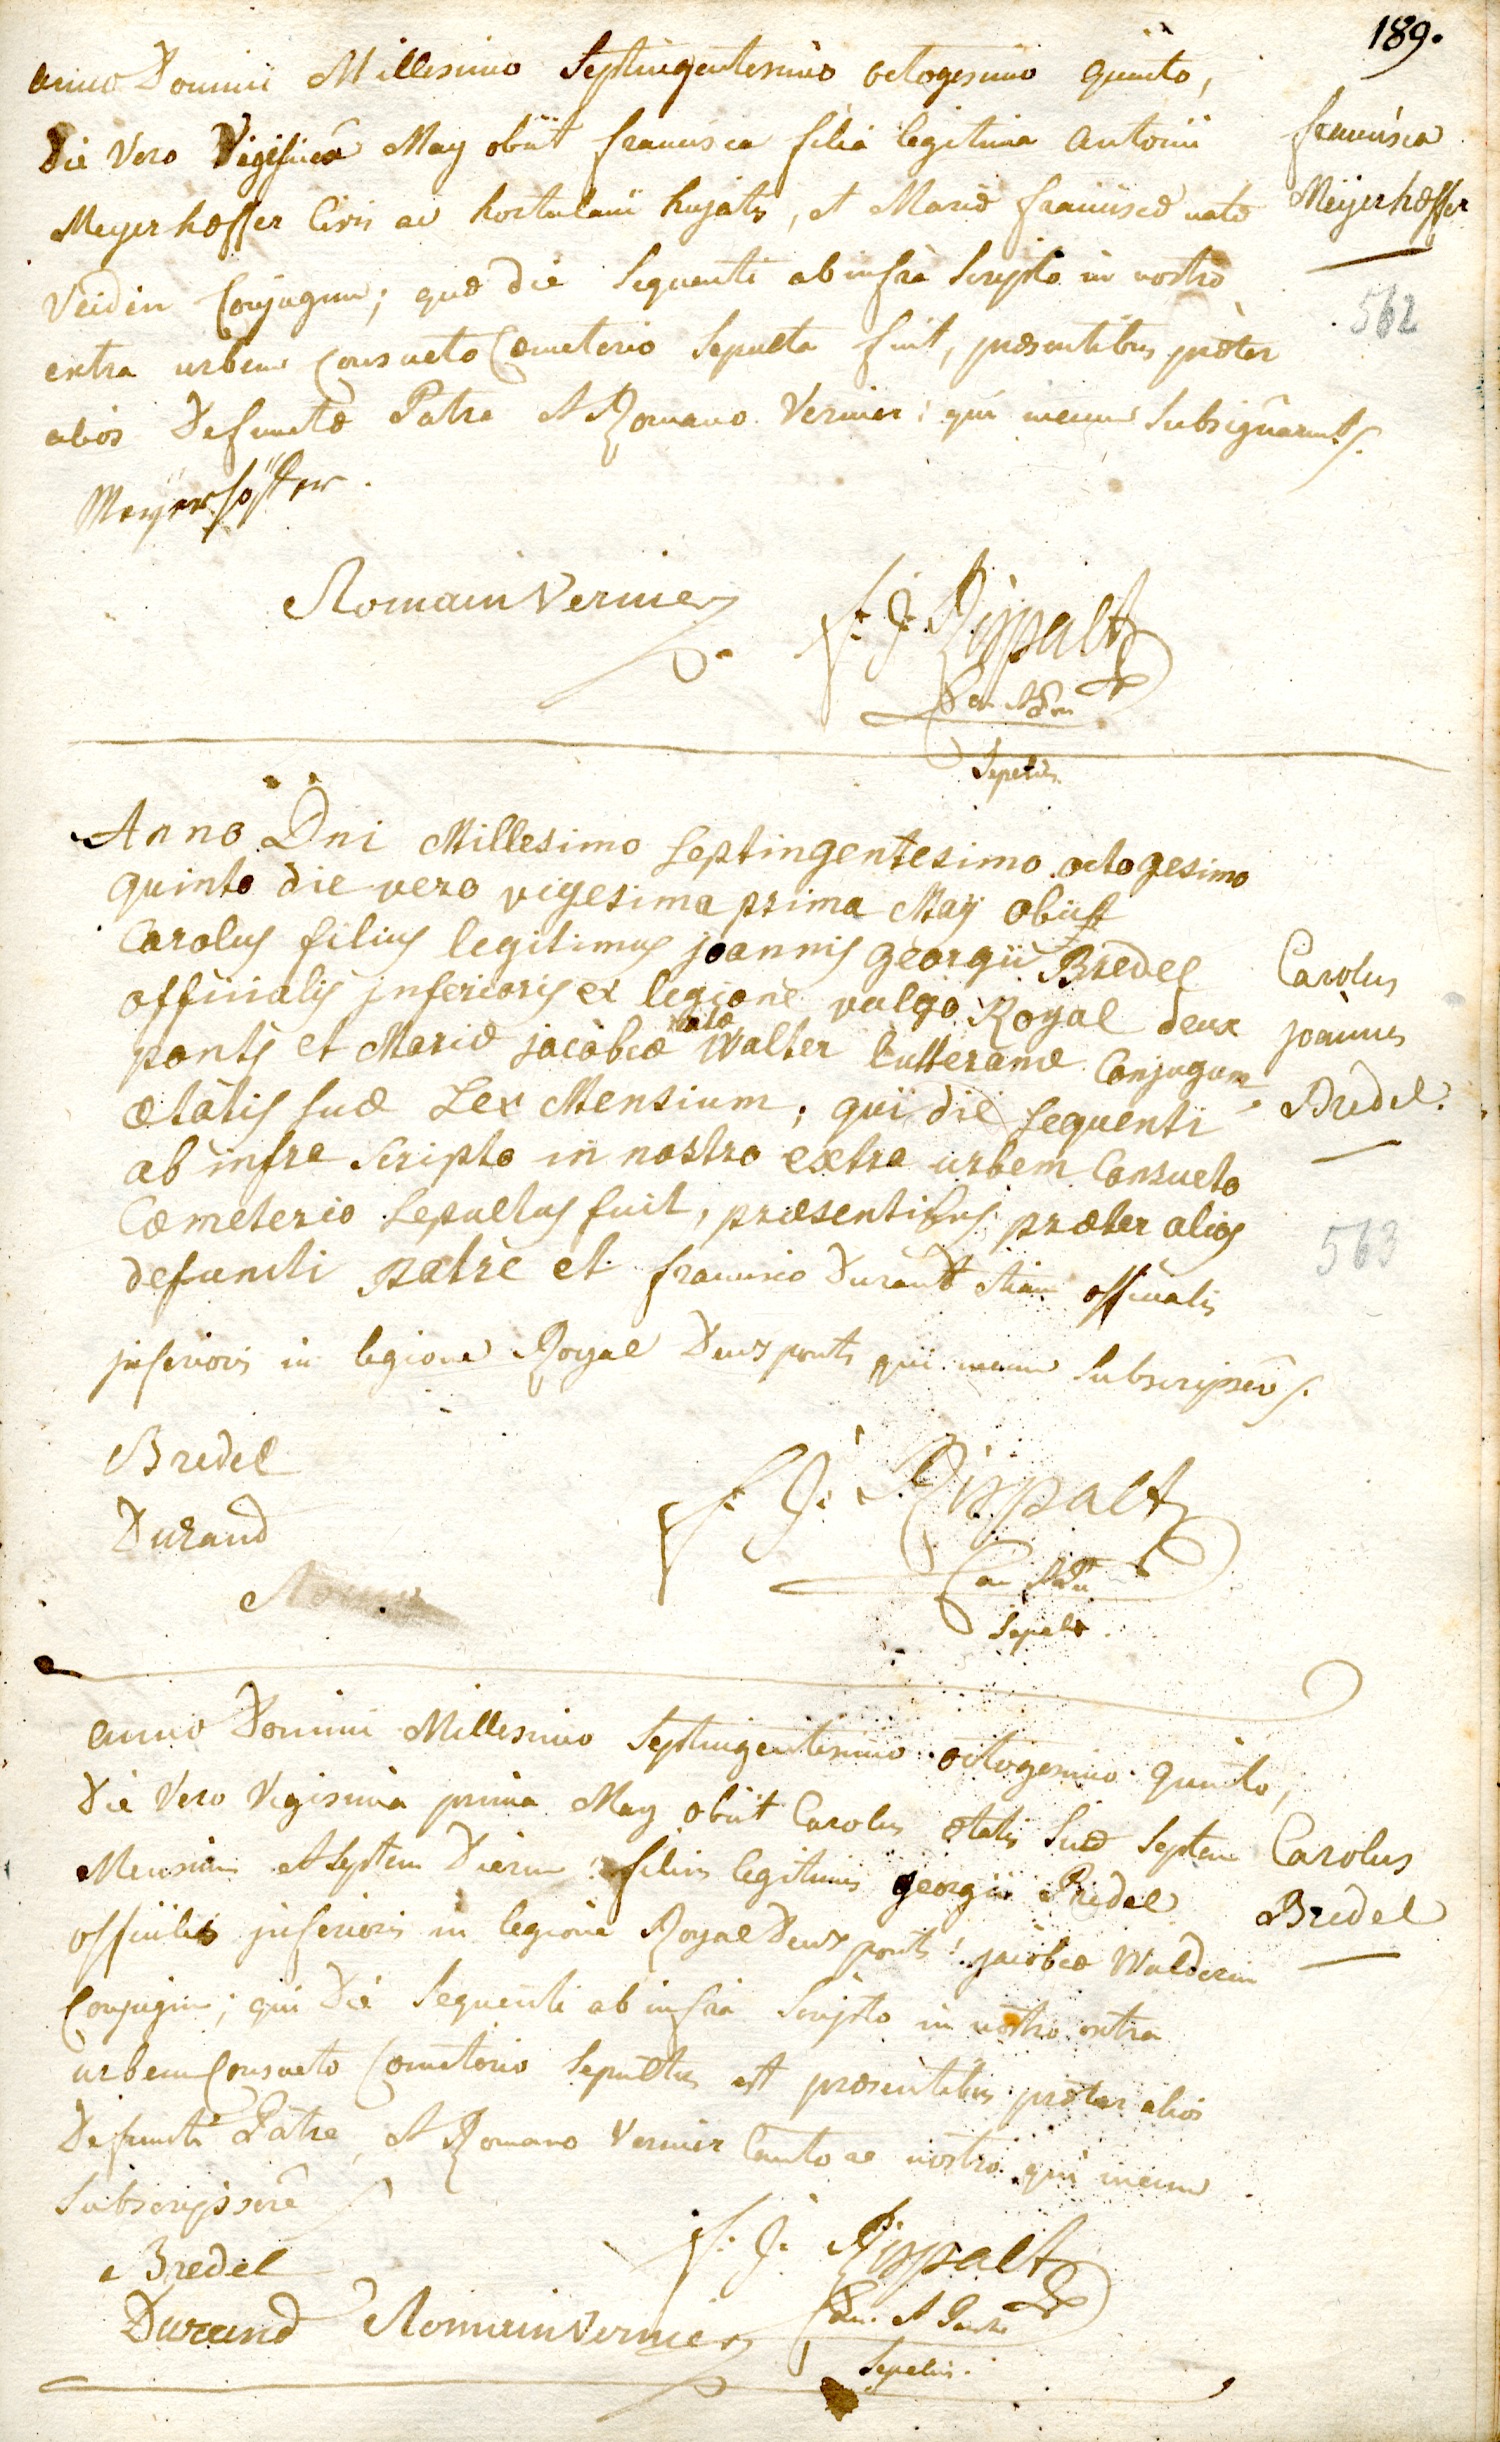 189.
anno Domini Millesimo Septingentesimo octogesimo quinto,
Die Vero Vigesima May obiit francisca filia legitima Antonii
Meyerhoeffer Civis ac hortulani hujatis, et Mariæ franciscæ natæ
Veidin Conjugum; quæ die sequenti ab infrà scripto in nostro
extra urbem consueto Cœmeterio sepulta fuit, præsentibus præter
alios Defunctæ Patre et Romano Vernier: qui mecum subsignarunt/.
francisca
Meijerhœffer
562
Meyerhöffer.
Romain Vernier
f. J. Rippalt
Can
Sepeliv.
Anno Dni Millesimo septingentesimo octogesimo
quinto die vero vigesima prima Maÿ obiit
Carolus filius legitimus joannis georgii Bredel
officialis jnferioris ex legione vulgo Royal deux
ponts et Mariæ jacobeæ natæ Walter lutteranæ Conjugum,
ætatis suæ Sex Mensium; qui die sequenti
ab infra scripto in nostro extra urbem Consueto
Cœmeterio sepultus fuit, præsentibus præter alios
defuncti patre et francisco Durandt etiam officialis
jnferioris in legione Royal Deux ponts qui mecum subscripserū/.
Carolus
joannes
Bredel.
563
Bredel
Durand
f. J. Rippalt
Can
Sepeliv.
anno Domini Millesimo Septingentesimo octogesimo quinto,
Die Vero Vigisima prima May obiit Carolus ætatis suæ septem
Mensium et septem Dierum: filius legitimus georgii Bridel
officilis jnferioris in legione Royal Deux ponts: jacobeæ Walderin
Conjugum; qui Die sequenti ab infrà scripto in nostro extra
urbem Consueto Cœmeterio sepultus est præsentibus præter alios
Defuncti Patre, et Romano Vernier Cantore nostro qui mecum
subscripserē/
Carolus
Bredel
Bredel
Durand
Romain Vernier
f. J. Rippalt
Can.
Sepeliv.